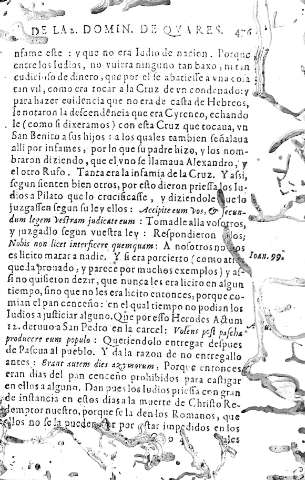 DE LA 2. DOMIN. DE QVARES. 476
nfame este : y que no era Iudio de nacion. Porque
entre los Iudios, no vuiera ninguno tan baxo, ni tan
cudicioso de dinero, que por el se abatiesse a vna cosa
tan vil, como era tocar a la Cruz de vn condenado: y
para hazer euidencia que no era de casta de Hebreos,
le notaron la descendẽcia que era Cyreneo, echando
le (como si dixeramos) con esta Cruz que tocaua, vn
San Benito a sus hijos : a los quales tambien señalaua
alli por infames, por lo que su padre hizo, y los nom-
braron diziendo, que el vno se llamaua Alexandro, y
el otro Rufo. Tanta era la infamia de la Cruz. Y assi,
segun sienten bien otros, por esto dieron priessa los Iu-
dios a Pilato que lo crucificasse, y diziendole que lo
juzgassen segun su ley ellos : Accipite eum vos, & secun-
dum legem vestram iudicate eum : Tomadle alla vosotros,
y juzgadlo segun vuestra ley : Respondieron ellos:
Nobis non licet interficere quemquam : A nosotros no
es licito matar a nadie. Y si era por cierto (como
Ioan. 99.
queda prouado, y parece por muchos exemplos) y as-
si no quisieron dezir, que nunca les era licito en algun
tiempo, sino que no les era licito entonces, porque co-
mian el pan cenceño : en el qual tiempo no podian los
Iudios a justiciar alguno. Que por esso Herodes Actum
12. detuuo a San Pedro en la carcel: Volens post pascha
producere eum populo : Queriendolo entregar despues
de Pascua al pueblo. Y da la razon de no entregallo
antes : Erant autem dies azymorum; Porque entonces
eran dias del pan cenceño prohibidos para castigar
en ellos a alguno. Dan pues los Iudios priessa con gran
de instancia en estos dias a la muerte de Christo Re-
demptor nuestro, porque se la den los Romanos, que
ellos no se la pueden dar por estar impedidos en los
quales